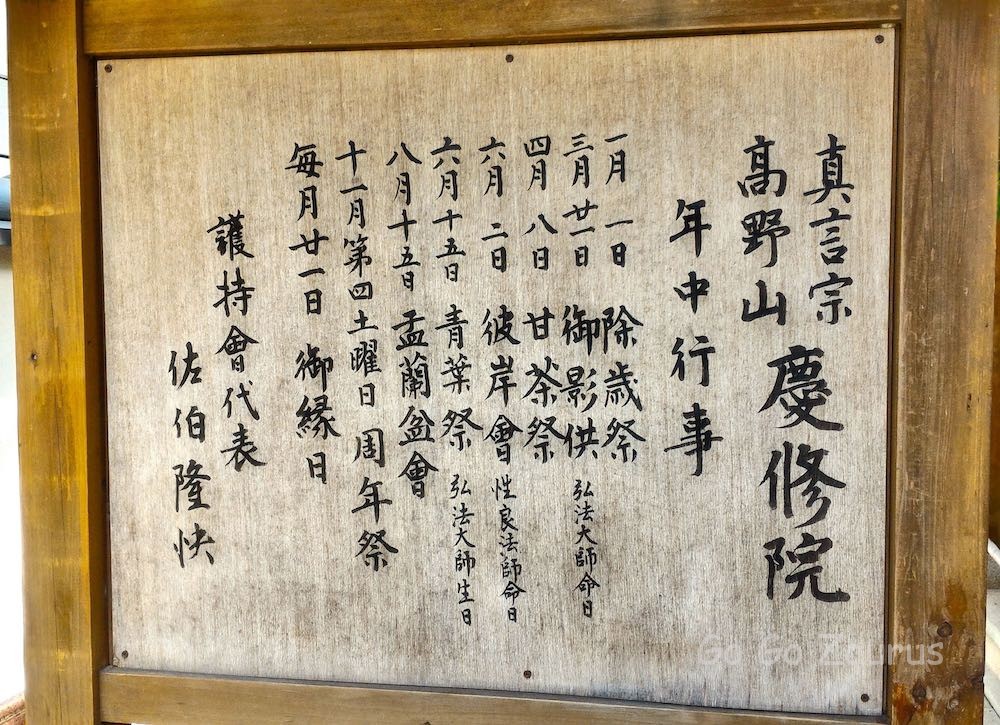 真言宗
高野山 慶修院
年中行事
一月 一日 除歳祭
三月廿一日 御影供 弘法大師命日
四月 八日 甘茶祭
六月 二日 彼岸會 性良法師命日
六月十五日 青葉祭 弘法大師生日
八月十五日 盂蘭盆會
十一月第四土曜日 周年祭
毎月廿一日 御縁日
護持會代表
佐伯隆快
Go Go Zaurus